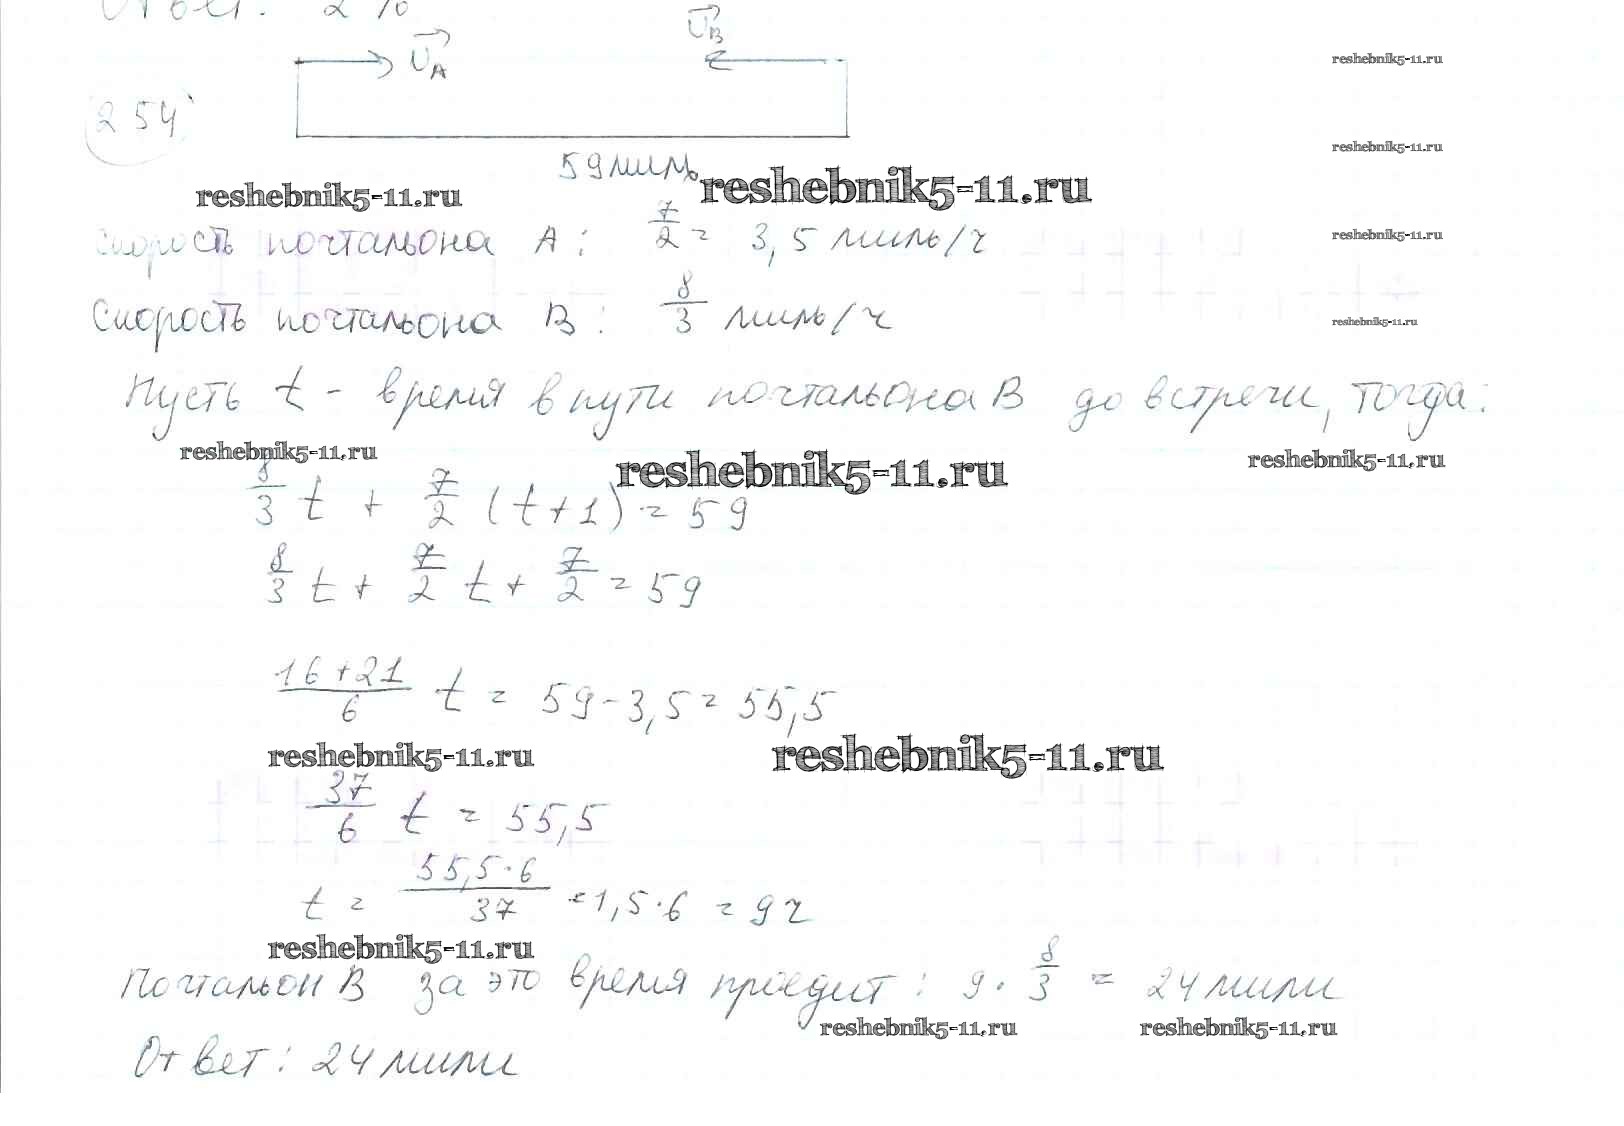 Ответ: 2%
U_A U_B
reshebnik5-11.ru
254
reshebnik5-11.ru
59 миль
reshebnik5-11.ru reshebnik5-11.ru
Скорость почтальона A: 7/2 = 3,5 миль/ч
reshebnik5-11.ru
Скорость почтальона B: 8/3 миль/ч
reshebnik5-11.ru
Пусть t - время в пути почтальона B до встречи, тогда:
reshebnik5-11.ru reshebnik5-11.ru reshebnik5-11.ru
8/3 t + 7/2 (t+1) = 59
8/3 t + 7/2 t + 7/2 = 59
(16+21)/6 t = 59-3,5 = 55,5
reshebnik5-11.ru reshebnik5-11.ru
37/6 t = 55,5
t = (55,5·6)/37 = 1,5·6 = 9ч
reshebnik5-11.ru
Почтальон B за это время проедит: 9·8/3 = 24 мили
reshebnik5-11.ru reshebnik5-11.ru
Ответ: 24 мили